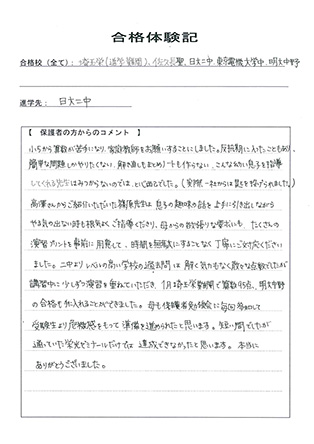 合格体験記
合格校（全て）： 埼玉栄(進学、難関)、佐久長聖、日大二中、東京電機大学中、明大中野
進学先： 日大二中
【 保護者の方からのコメント 】
小5から算数が苦手になり、家庭教師をお願いすることにしました。反抗期に入ったこともあり、
簡単な問題しかやりたくない、解き直しもまとめノートも作らない、こんな幼い息子を指導
してくれる先生はみつからないのでは、と心配でした。(実際一社からは
さんからご紹介いただいた篠原先生は息子の趣味の話を上手に引き出しながら
やる気の出ない時も根気よくご指導くださり、母からの欲張りな要求にも、たくさんの
演習プリントを事前に用意して、時間を無駄にすることなく丁寧にご対応ください
ました。二中よりレベルの高い学校の過去問は解く気力もなく散々な点数でしたが
講習中に少しずつ演習を重ねていただき、1月埼玉栄難関で算数95点、明大中野
の合格も手に入れることができました。母も保護者勉強会に毎回参加して
受験生より危機感をもって準備を進められたと思います。短い間でしたが
通っていた栄光ゼミナールだけでは達成できなかったと思います。本当に
ありがとうございました。